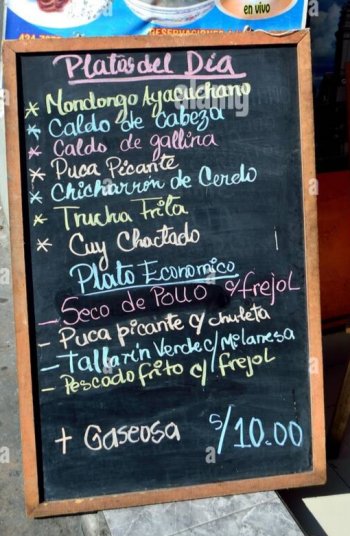 en vivo
RESERVACIONES
Platos del Día
* Mondongo Ayacuchano
* Caldo de Cabeza
* Caldo de gallina
* Puca Picante
* Chicharrón de Cerdo
* Trucha Frita
* Cuy Chactado
Plato Economico
- Seco de Pollo c/frejol
- Puca picante c/ chuleta
- Tallarin Verde c/Melanesa
- Pescado frito c/ frejol
+ Gaseosa S/10.00
alamy